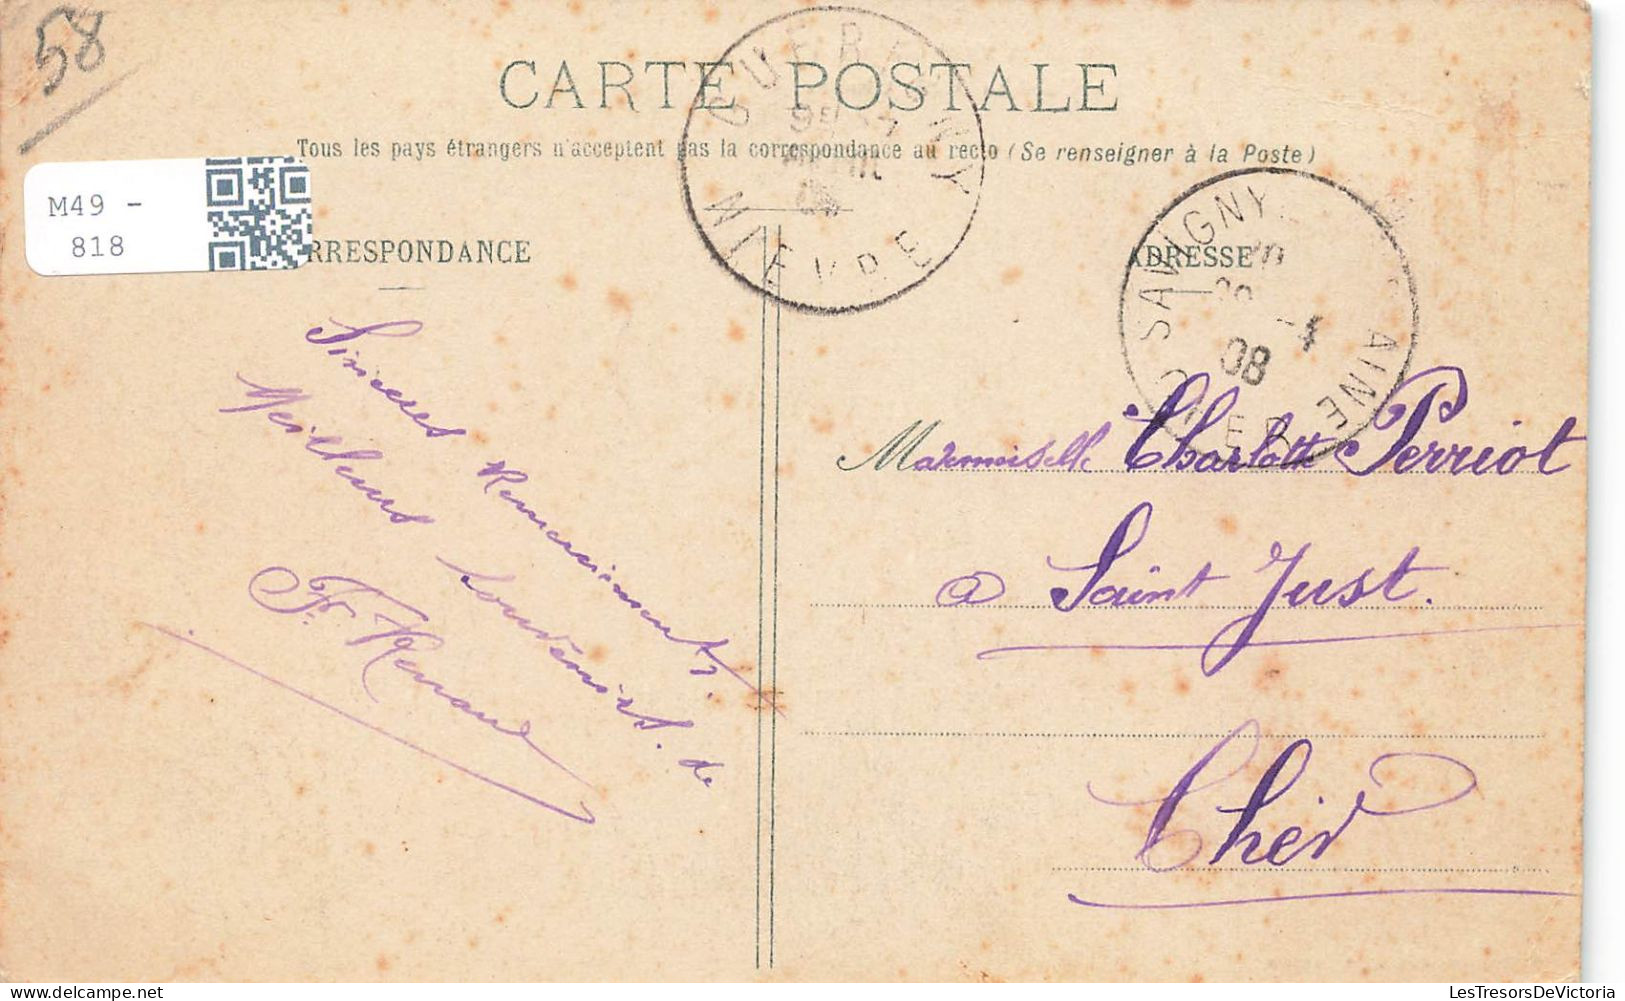 58
CARTE POSTALE
Tous les pays étrangers n'acceptent pas la correspondance au recto (Se renseigner à la Poste)
M49 -
818
RRESPONDANCE
ADRESSE
GUERIGNY
NIEVRE
SAVIGNY
AINE
CHER
08
Sincères Remerciements.
Meilleurs Souvenirs. de
Fr. Renaud
Mademoiselle Charlotte Perriot
a Saint Just.
Cher
LesTresorsDeVictoria.com